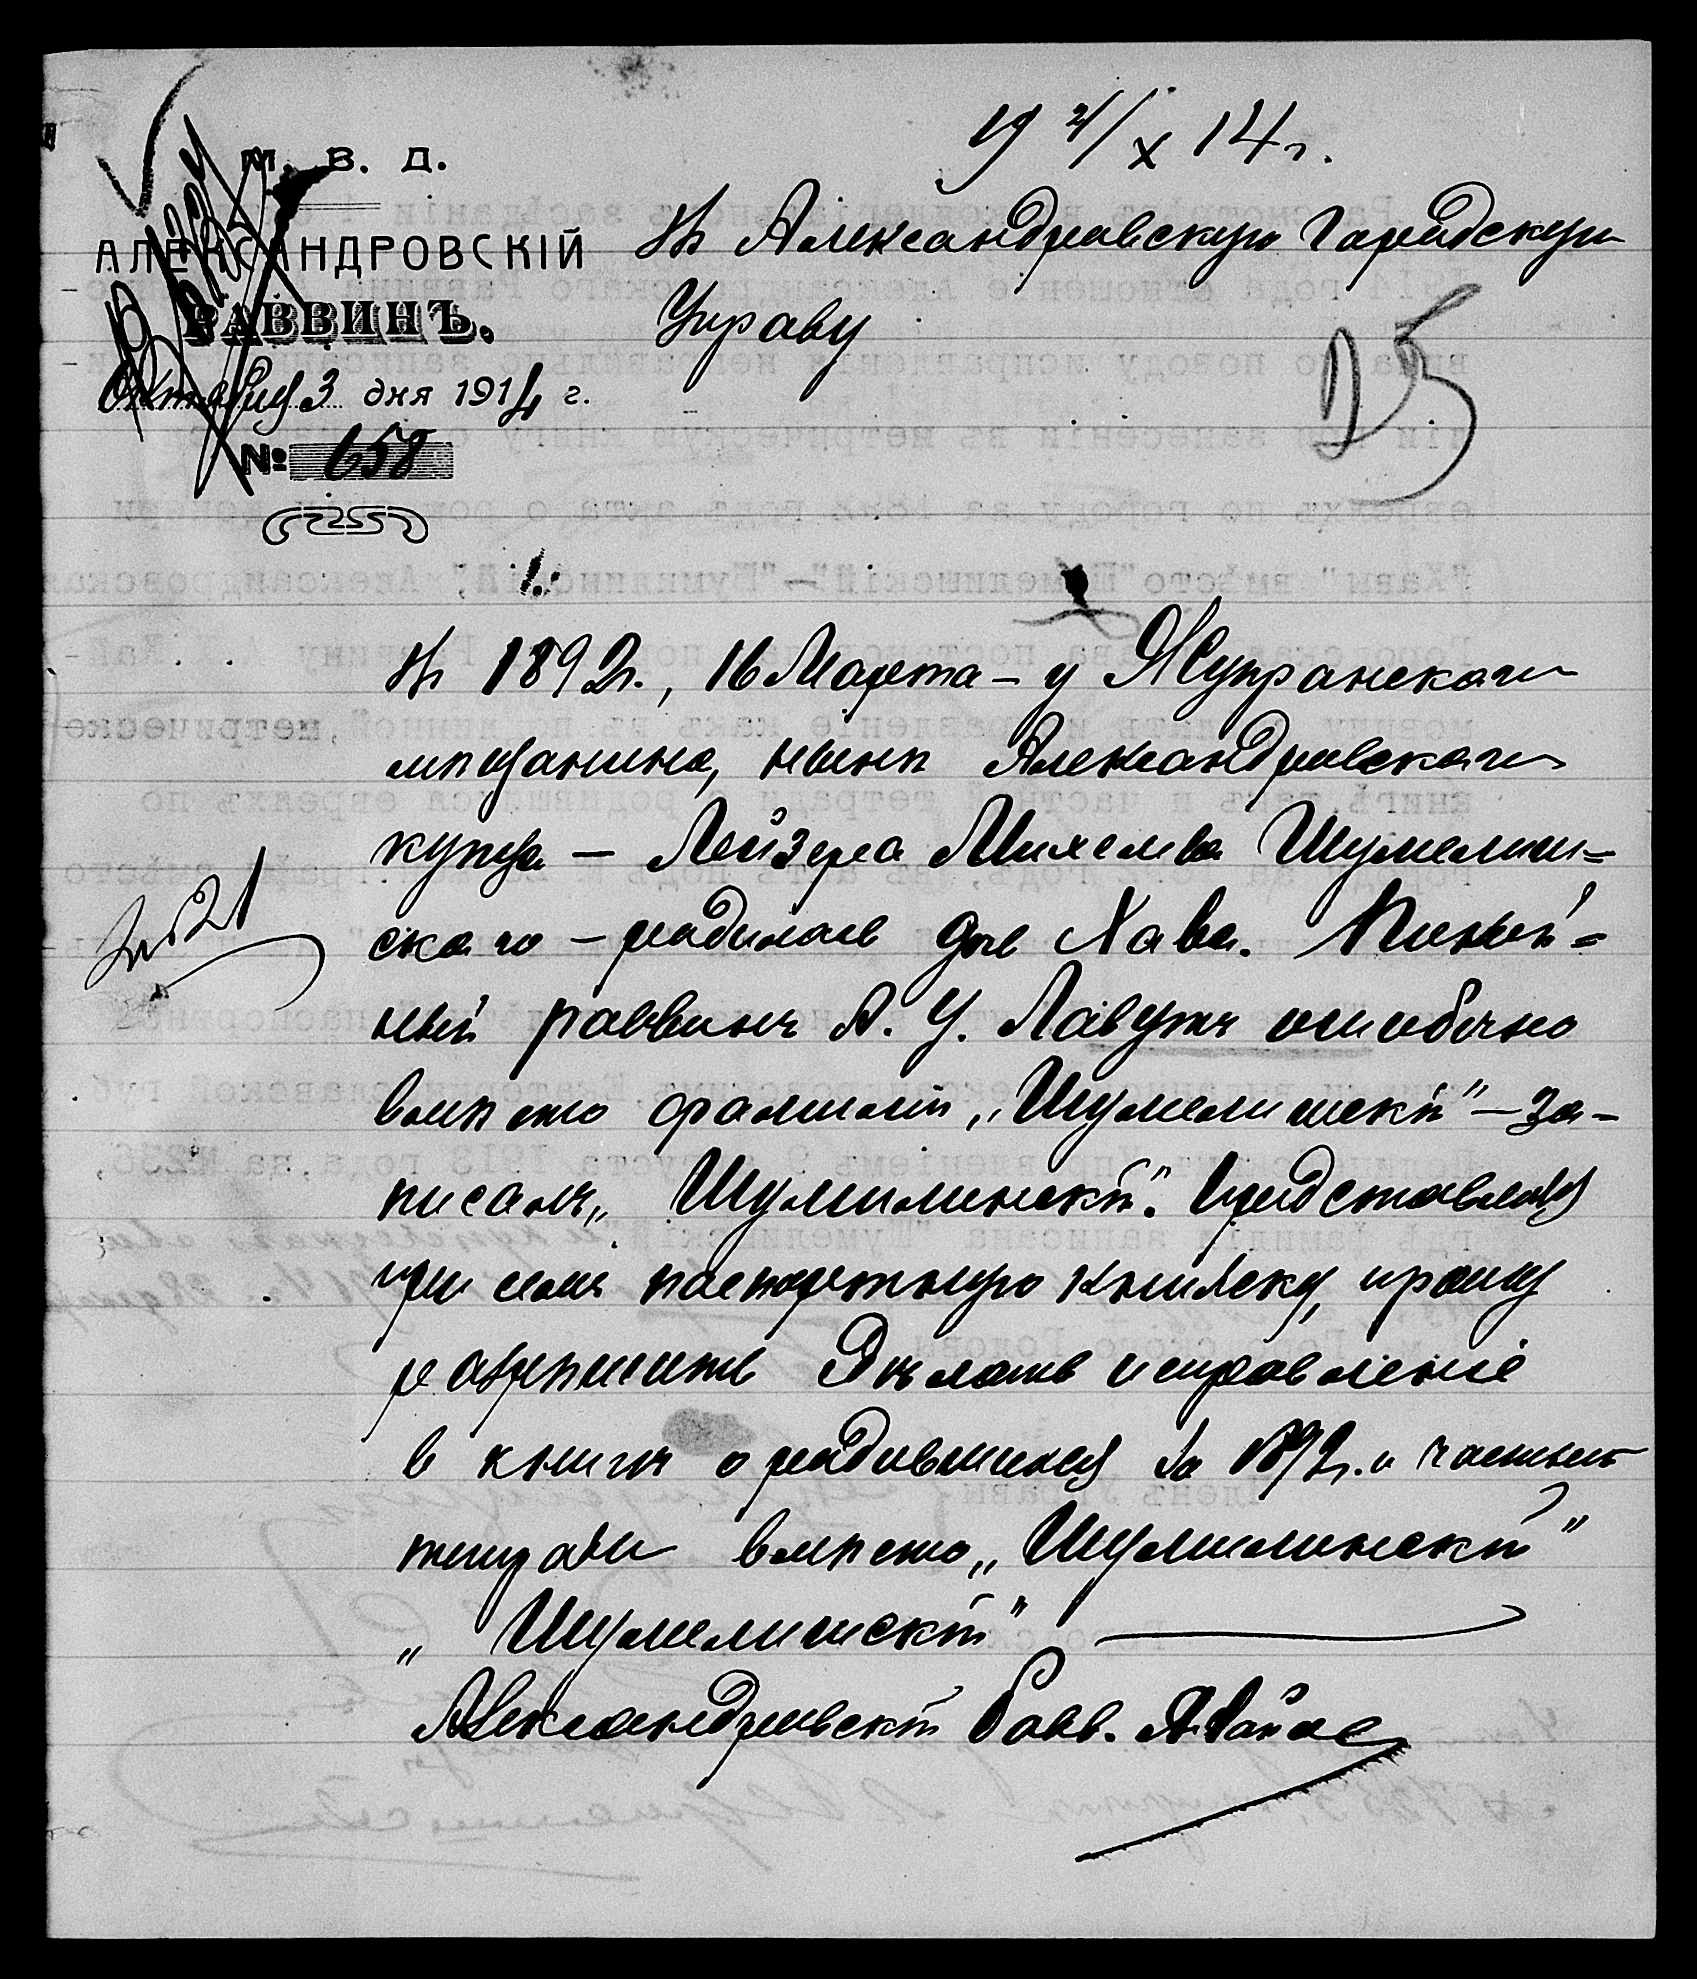 19 21/X 14 г.
М. В. Д.
АЛЕКСАНДРОВСКІЙ
РАВВИНЪ.
Октября 3 дня 1914 г.
№ 658
Въ Александровскую Городскую
Управу
25
Въ 1892 г., 16 Марта – у Жупранскаго
мѣщанина, нынѣ Александровскаго
купца – Лейзера Михелева Шумелиш=
скаго – родилась дочь Хава. Покой=
ный раввинъ А. У. Лавутъ ошибочно
вмѣсто фамиліи „Шумелишскій" – за-
писалъ „Шумилинскій". Представляя
при семъ паспортную книжку, прошу
разрѣшить дѣлать исправленіе
в книгѣ о родившихся за 1892 г. и частной
тетради вмѣсто „Шумилинскій"
„Шумелишскій"
Александровскій Равв.
№ 21